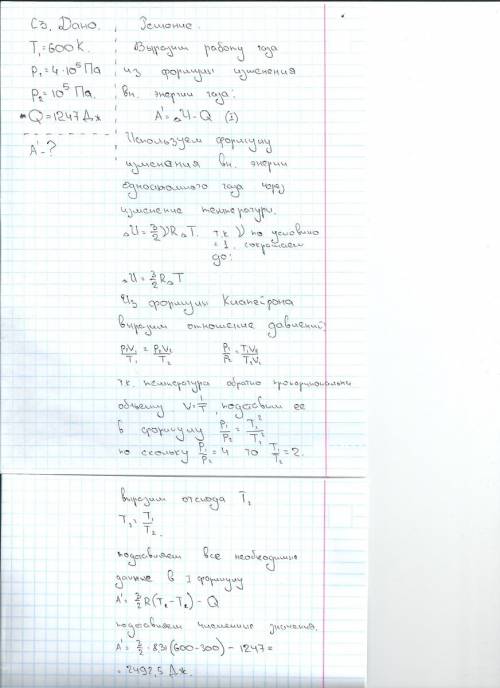 С3. Дано.
T₁=600К.
P₁=4·10⁵ Па
P₂=10⁵ Па.
Q=1247 Дж
A'-?
Решение.
Выразим работу газа
из формулы изменения
вн. энергии газа:
A'=ΔU-Q (I)
Используем формулу
изменения вн. энергии
одноатомного газа через
изменение температуры.
ΔU=3/2 νRΔT. т.к ν по условию
=1, сокращаем
до:
ΔU=3/2 RΔT
Из формулы Клапейрона
выразим отношение давлений:
P₁V₁/T₁ = P₂V₂/T₂ P₁/P₂ = T₁V₂/T₂V₁
т.к. температура обратно пропорциональна
объему V=1/T, подставим ее
в формулу P₁/P₂ = T₁²/T₂²
по скольку P₁/P₂=4 то T₁/T₂=2.
выразим отсюда T₂
T₂=T₁/T₂
подставляем все необходимые
данные в I формулу
A'=3/2 R(T₁-T₂)-Q
подставляем численные значения.
A'=3/2·8,31(600-300)-1247=
=2492,5 Дж.